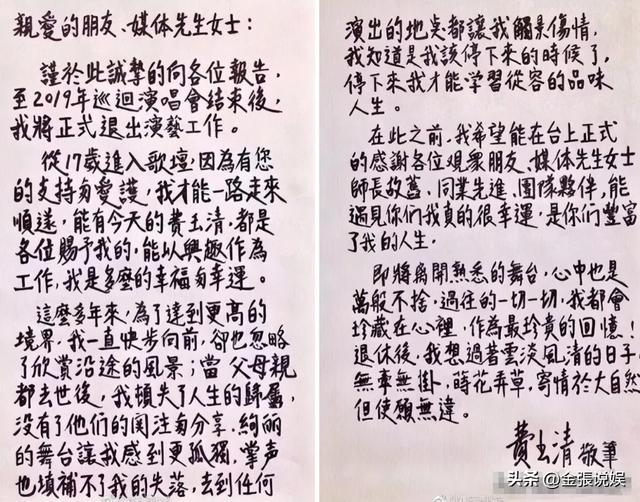 親愛的朋友、媒体先生女士：
謹於此誠摯的向各位報告，
至2019年巡迴演唱會結束後，
我將正式退出演藝工作。
從17歲進入歌壇，因為有您
的支持与愛護，我才能一路走來
順遂，能有今天的費玉清，都是
各位賜予我的，能以興趣作為
工作，我是多麼的幸福与幸運。
這麼多年來，為了達到更高的
境界，我一直快步向前，卻也忽略
了欣賞沿途的風景；當父母親
都去世後，我頓失了人生的歸屬，
没有了他們的関注与分享，絢丽
的舞台讓我感到更孤獨，掌声
也填補不了我的失落，去到任何
演出的地点都讓我觸景傷情，
我知道是我該停下來的時候了，
停下來我才能学習從容的品味
人生。
在此之前，我希望能在台上正式
的感謝各位观衆朋友、媒体先生女士
師長故舊、同業先進、团隊夥伴，能
遇見你們我真的很幸運，是你們豐富
了我的人生，
即將离開熟悉的舞台，心中也是
萬般不捨，過往的一切一切，我都會
珍藏在心裡，作為最珍貴的回憶！
退休後，我想過着雲淡風清的日子，
無牽無掛，蒔花弄草，寄情於大自然
但使願無違。
費玉清 敬筆
头条 @金張说娱